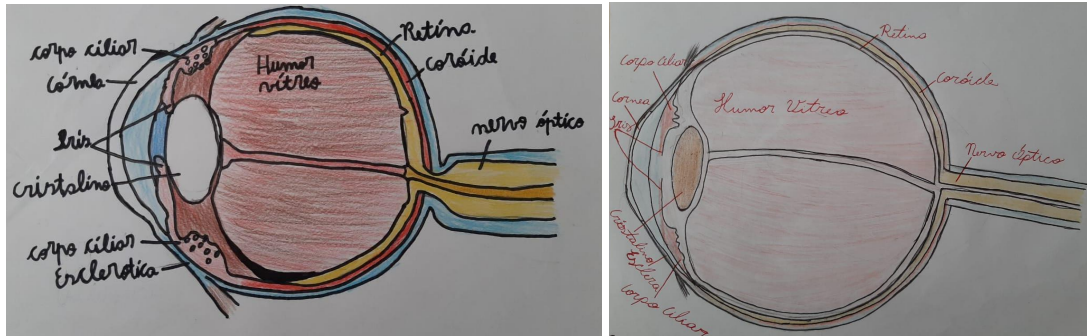 corpo ciliar
córnea
Iris
cristalino
corpo ciliar
Esclerótica
Humor
vítreo
Retina
coróide
nervo óptico
Corpo Ciliar
Cornea
Iris
Humor Vitreo
Retina
Coróide
Nervo óptico
Cristalino
Esclera
Corpo Ciliar